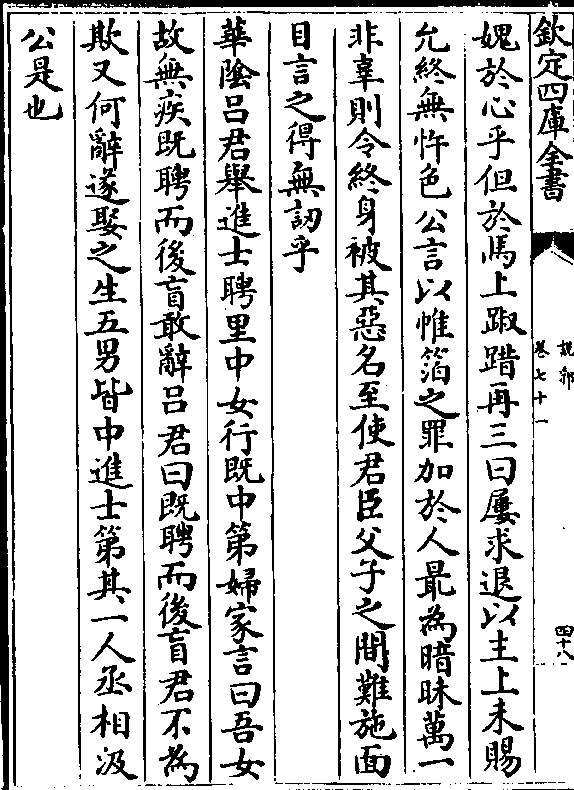 欽定四庫全書
說郛
卷七十一
四十八
媿於心乎但於馬上踧踖再三曰屢求退以主上未賜
允終無忤色公言以帷箔之罪加於人最為暗昧萬一
非辜則令終身被其惡名至使君臣父子之間難施面
目言之得無訒乎
華陰呂君舉進士聘里中女行既中第婦家言曰吾女
故無疾既聘而後盲敢辭呂君曰既聘而後盲君不為
欺又何辭遂娶之生五男皆中進士第其一人丞相汲
公是也